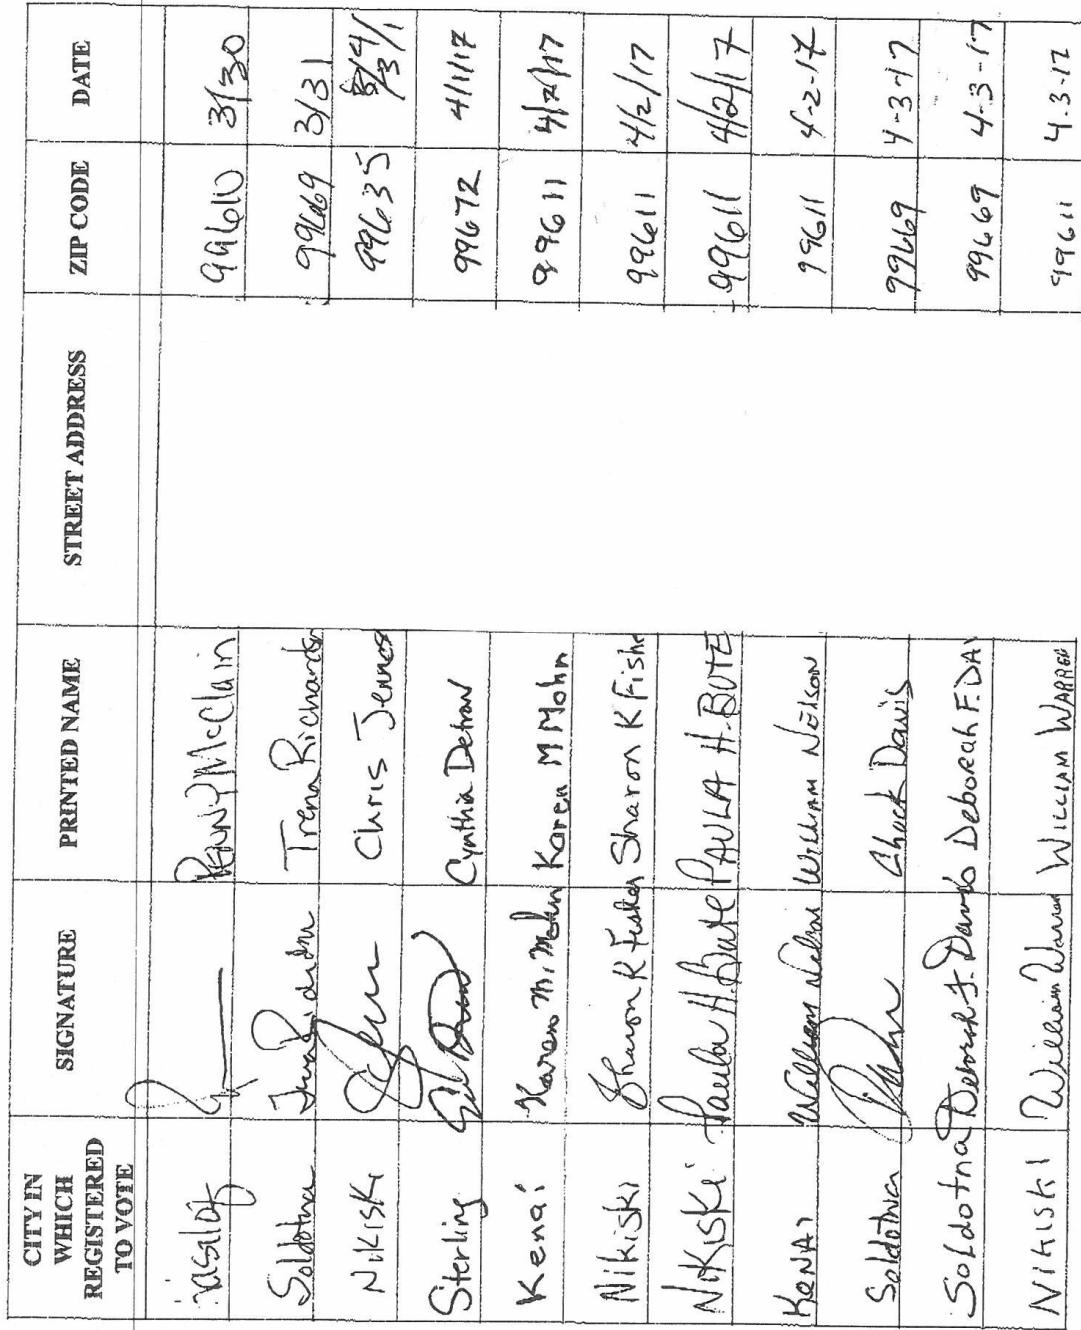 CITY IN WHICH REGISTERED TO VOTE SIGNATURE PRINTED NAME STREET ADDRESS ZIP CODE DATE
Kasilof PENNY McClain 99610 3/30
Soldotna Trena Richards 99669 3/31
Nikiski Chris Jennes 99635 3/31
Sterling Cynthia Detrow 99672 4/1/17
Kenai Karen M. Mohn Karen M Mohn 99611 4/2/17
Nikiski Sharon K Fisher Sharon K Fishe 99611 4/2/17
NiKiSKi Paula H. Bute PAULA H. BUTE 99611 4/2/17
KENAI William Nelson William Nelson 99611 4-2-17
Soldotna Chuck Davis 99669 4-3-17
Soldotna Deborah F. Davis Deborah F. DAV 99669 4-3-17
Nikiski William Warren WILLIAM WARREN 99611 4-3-17